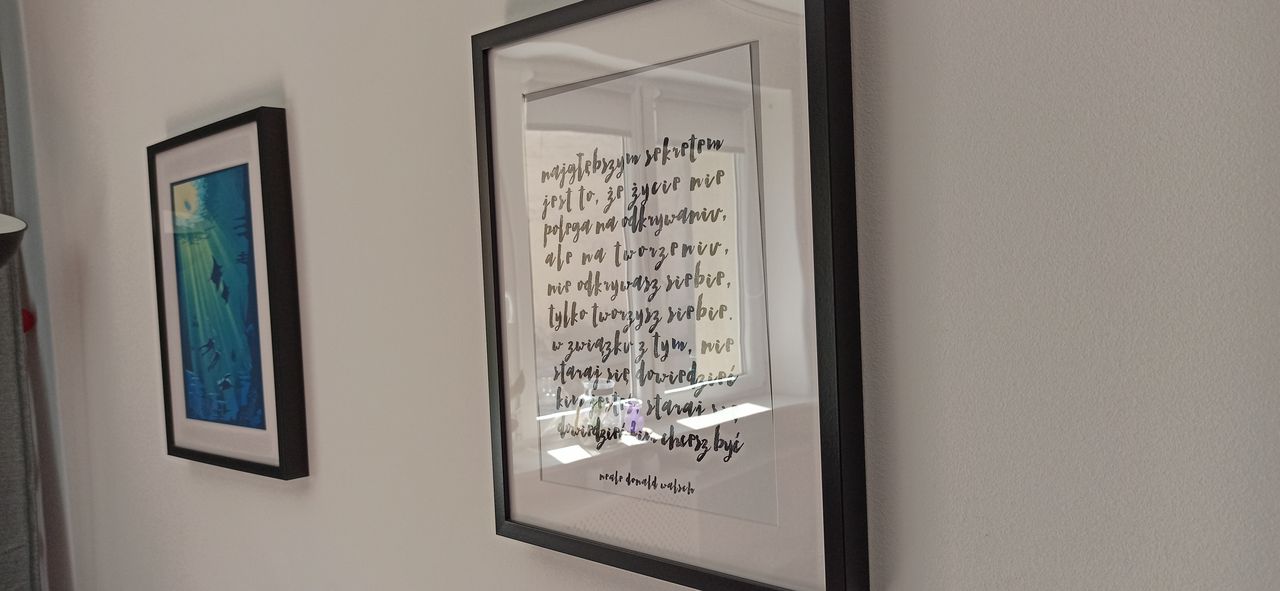 najgłębszym sekretem
jest to, że życie nie
polega na odkrywaniu,
ale na tworzeniu,
nie odkrywasz siebie,
tylko tworzysz siebie.
w związku z tym, nie
staraj się dowiedzieć
kim jesteś, staraj się
dowiedzieć kim chcesz być
neale donald walsch